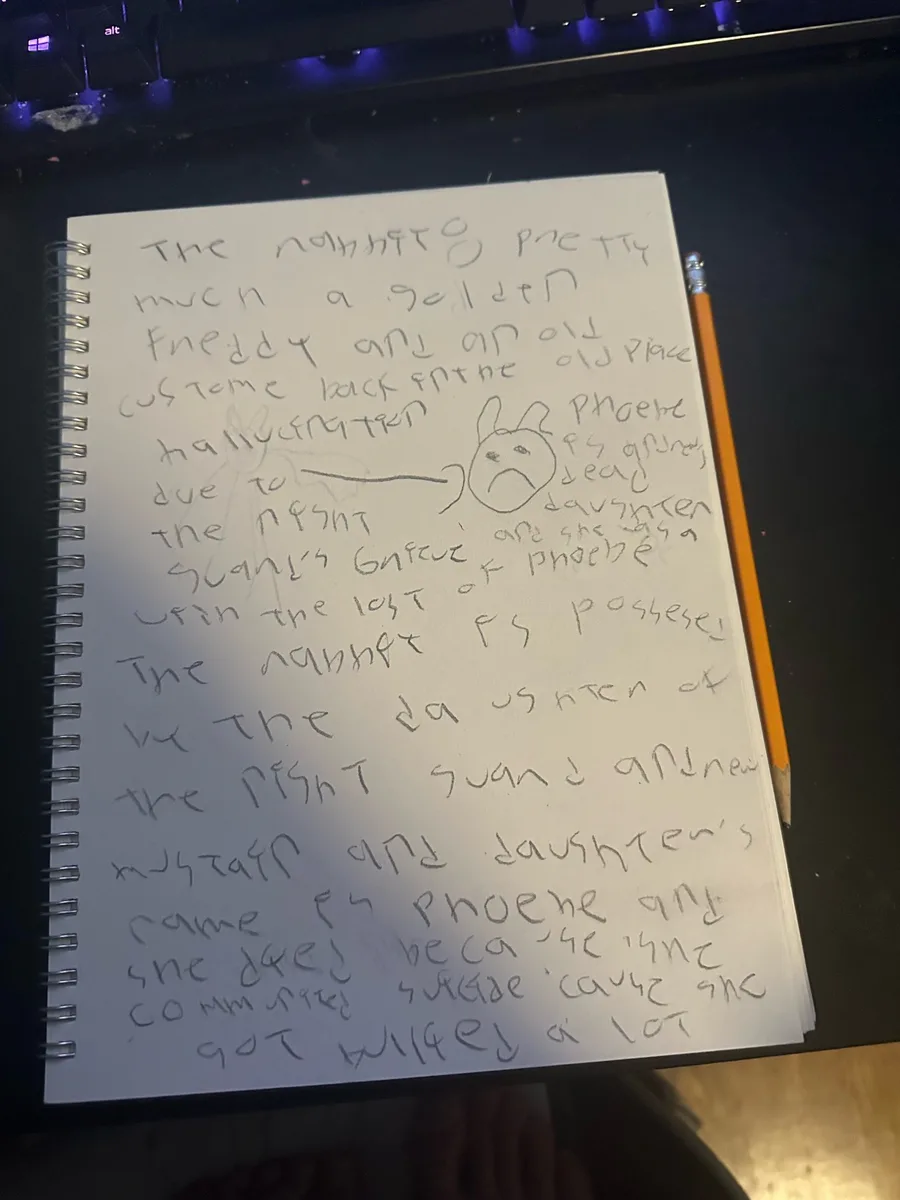 alt
The rabbit: pretty
much a golden
Freddy and an old
custome back in the old place
hallucination
due to
the night
guard's Grieve
with the lost of phoebe
Phoebe
is andrew's
dead
daughter
and she was a
The rabbit is posseses
by the daughter of
the night guard andrew
mustain and daughter's
name is phoebe and
she died because she
commited suicide 'cause she
got bullied a lot